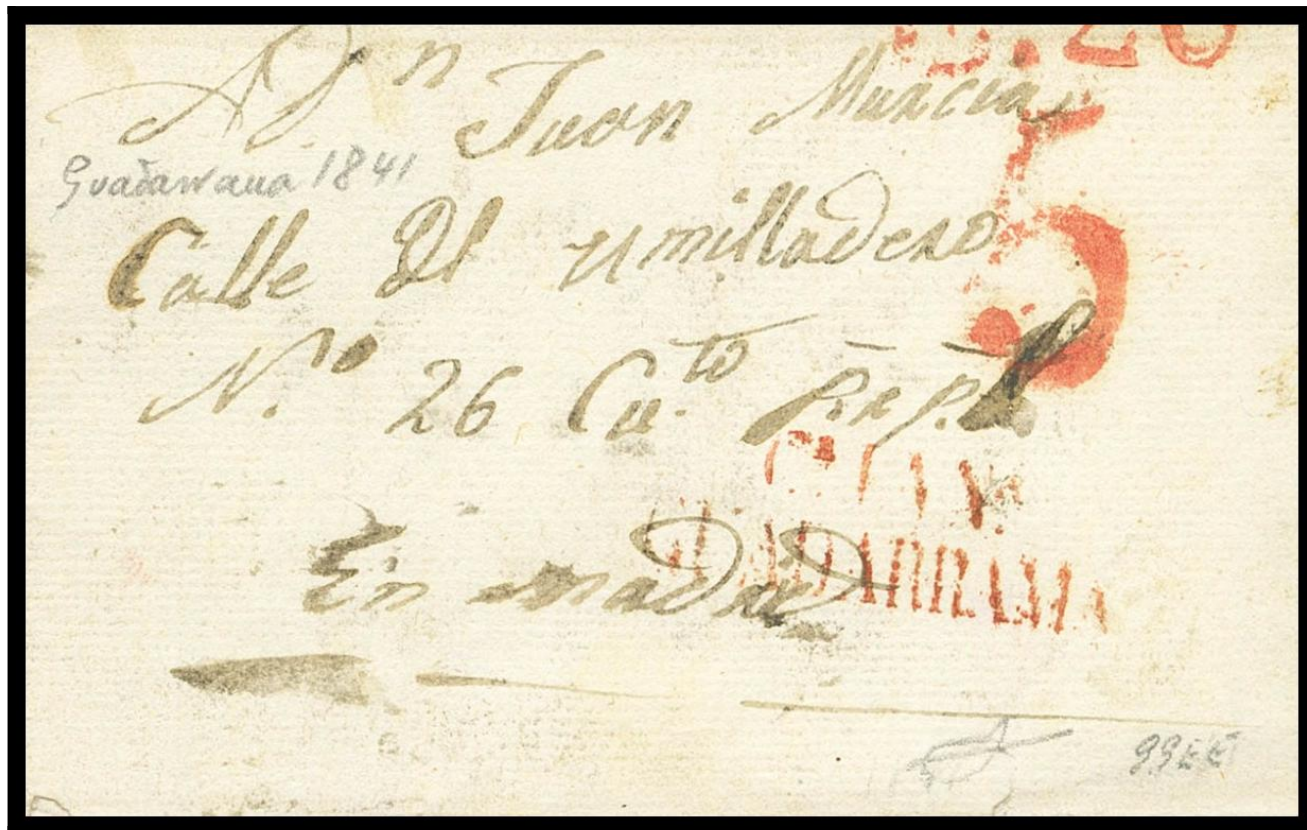 A Dn Juan Murcia
Guadarrama 1841
5
Calle Del Umilladero
N.º 26 Cu.to Prnp.l
C. LA V.
GUADARRAMA
En madrid